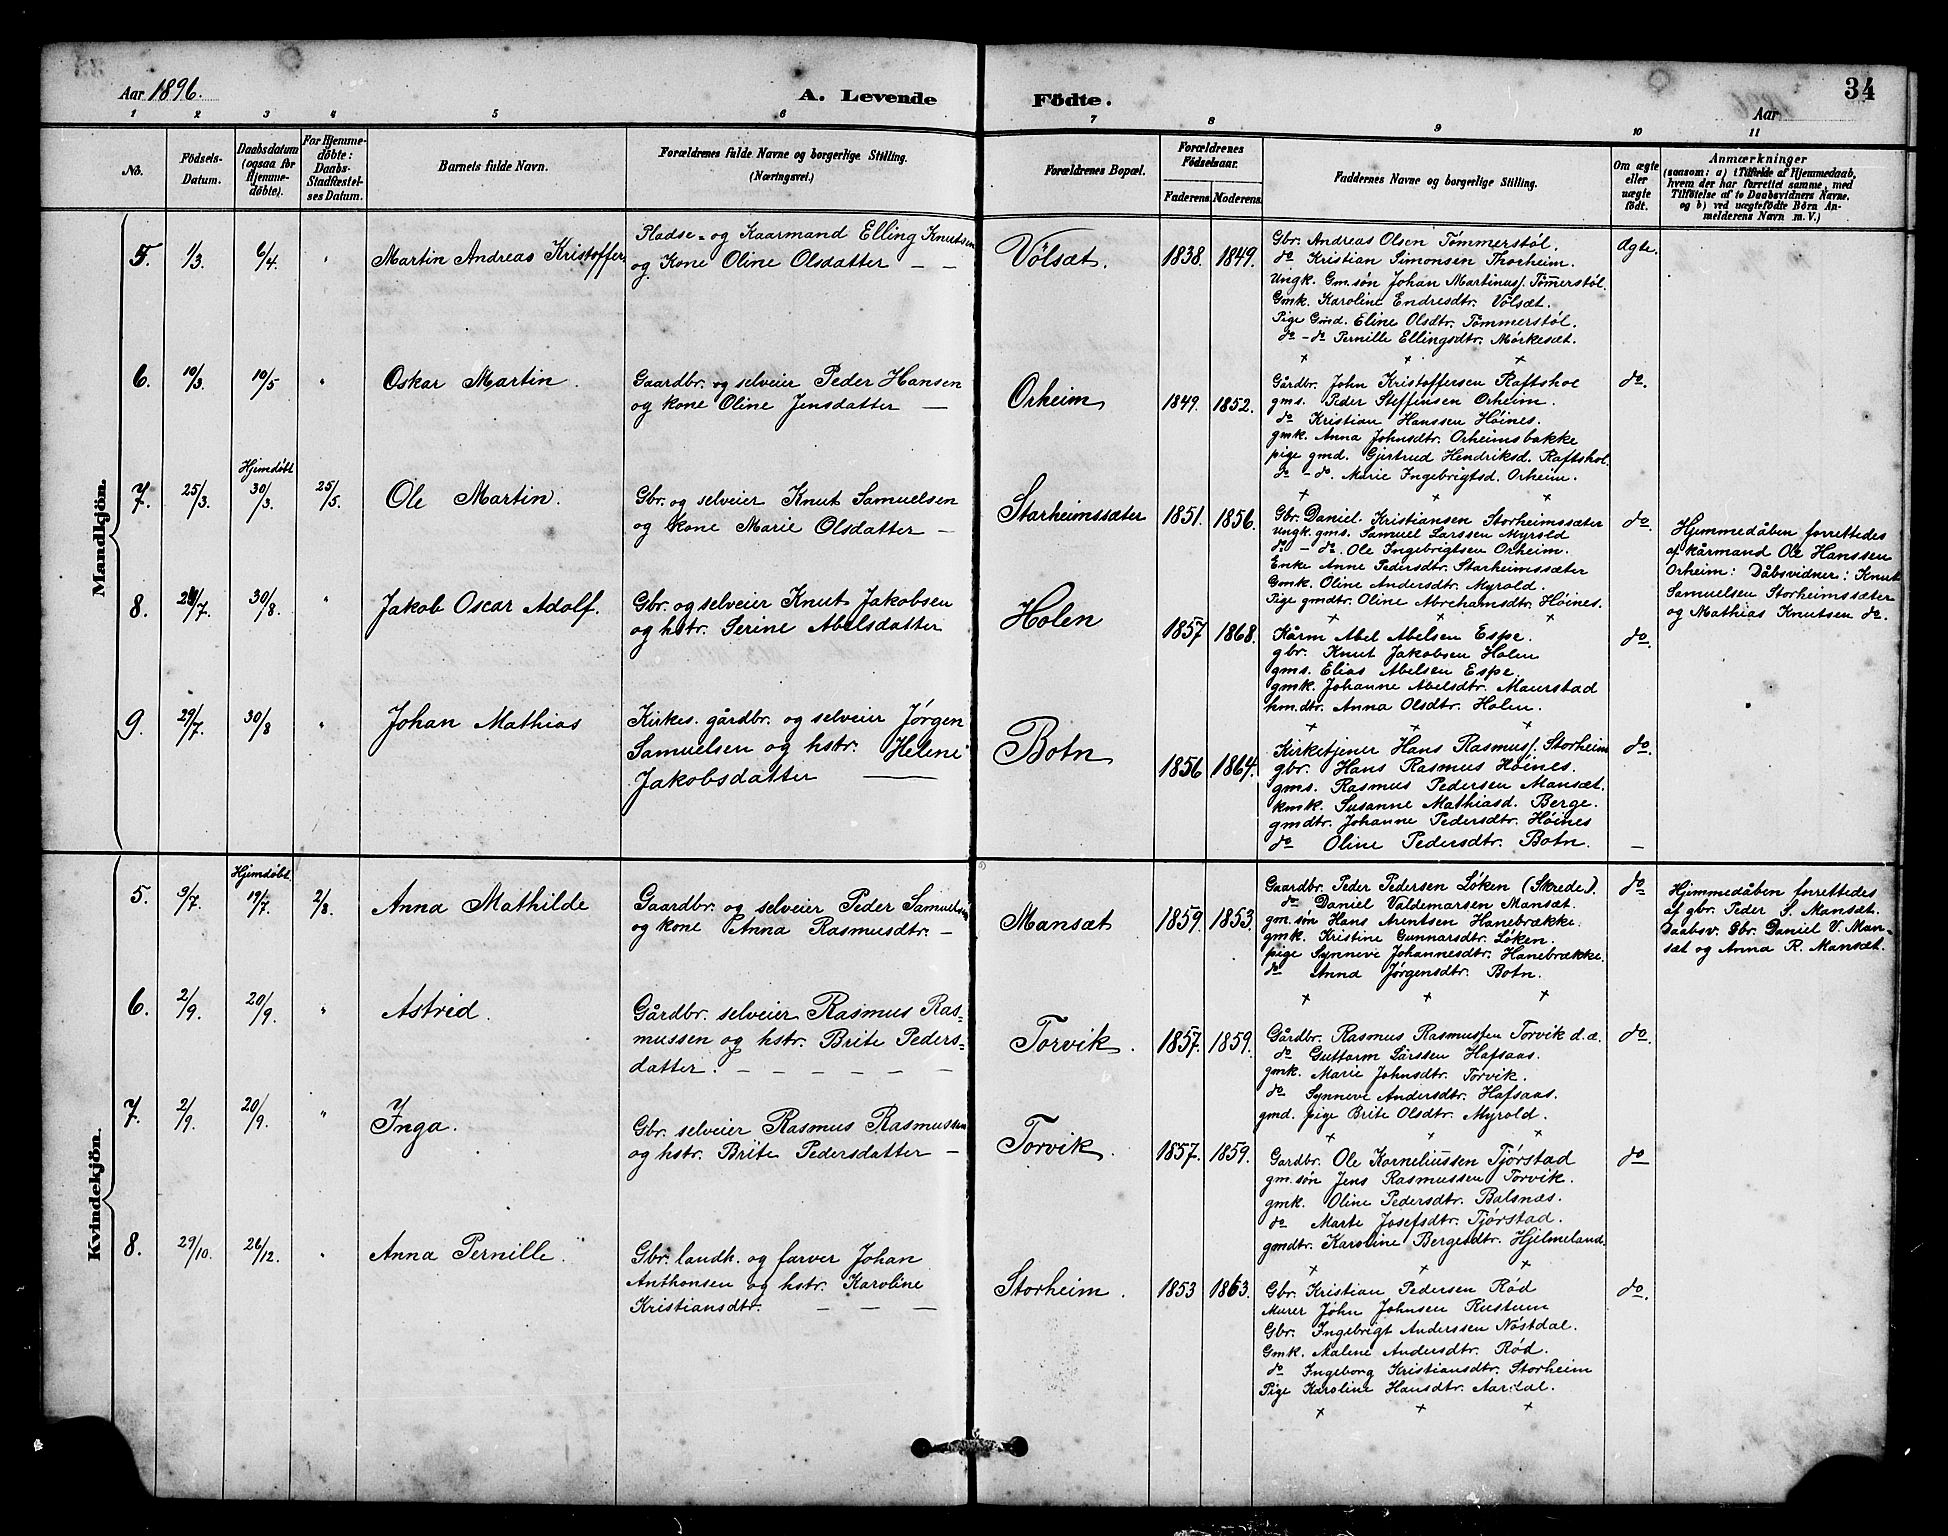 Aar 1896. A. Levende Födte. Aar 34
1 2 3 4 5 6 7 8 9 10 11
No.
Födsels-
Datum.
Daabsdatum
(ogsaa for
Hjemme-
døbte).
For Hjemme-
døbte:
Daabs-
Stadfæstel-
ses Datum.
Barnets fulde Navn.
Forældrenes fulde Navne og borgerlige Stilling.
(Næringsvei.)
Forældrenes Bopæl.
Forældrenes
Födselsaar.
Faderens. Moderens.
Faddernes Navne og borgerlige Stilling.
Om ægte
eller
uægte
födt.
Anmærkninger
(saasom: a) i Tilfælde af Hjemmedaab,
hvem der har forrettet samme, med
Tilføielse af to Daabsvidners Navne,
og b) ved uægtefödte Börn An-
melderens Navn m. V.)
Mandkjön.
5. 1/3. 6/4 " Martin Andreas Kristoffer
Pladse- og Kaarmand Elling Knutsen
og Kone Oline Olsdatter — —
Völsæt. 1838. 1849.
Gbr. Andreas Olsen Tömmerstöl.
do Kristian Simonsen Thorheim.
Ungk. Gm.søn Johan Martinus. Tömmerstöl.
Gmk. Karoline Endresdtr. Völsæt.
Pige Gmd. Eline Olsdtr. Tömmerstöl.
do - do Pernille Ellingsdtr. Mörkesæt.
Ægte.
+ + +
6. 10/3. 10/5 " Oskar Martin.
Gaardbr. og selveier Peder Hansen
og kone Oline Jensdatter —
Orheim 1849. 1852.
Gårdbr. John Kristoffersen Raftshol
gms. Peder Steffensen Orheim.
do Kristian Hanssen Höines.
gmk. Anna Johnsdtr. Orheimsbakke
pige gmd. Gjertrud Hendriksd. Raftshol.
do - do. Marie Ingebrigtsd. Orheim.
do.
+ + +
7. 25/3. Hjemdöbt
30/3. 25/5. Ole Martin.
Gbr. og selveier Knut Samuelsen
og Kone Marie Olsdatter —
Starheimssæter 1851. 1856.
Gbr. Daniel Kristiansen Storheimssæter
ungk. gms. Samuel Larssen Myrold
do - do. Ole Ingebrigtsen Orheim.
Enke Anne Pedersdtr. Starheimssæter
Gmk. Oline Andersdtr. Myrold.
Pige gmdtr. Oline Abrehamsdtr. Höines.
do.
Hjemmedåben forrettedes
af kårmand Ole Hanssen
Orheim: Dåbsvidner: Knut
Samuelsen Storheimssæter
og Mathias Knutsen do.
+ + +
8. /7. 30/8. " Jakob Oscar Adolf.
Gbr. og selveier Knut Jakobsen
og hstr. Serine Abelsdatter
Holen 1857 1868.
Kårm Abel Abelsen Espe.
gbr. Knut Jakobsen Holen
gms. Elias Abelsen Espe
gmk. Johanne Abelsdtr. Maurstad
hm.dtr. Anna Olsdtr. Holen.
do.
+ + +
9. 29/7. 30/8 " Johan Mathias
Kirkes. gårdbr. og selveier Jörgen
Samuelsen og hstr. Helene
Jakobsdatter ——
Botn 1856 1864.
Kirketjener Hans Rasmus. Storheim
gbr. Hans Rasmus Höines.
gms. Rasmus Pedersen Mansæt.
kmk. Susanne Mathiasd. Berge.
gmdtr. Johanne Pedersdtr. Höines
do Oline Pedersdtr. Botn.
do.
—
Kvindekjön.
5. 9/7. Hjemdöbt.
19/7. 2/8. Anna Mathilde
Gaardbr. og selveier Peder Samuelsen
og kone Anna Rasmusdtr. —
Mansæt 1859. 1853.
Gaardbr. Peder Pedersen Löken (Skrede).
do Daniel Valdemarsen Mansæt.
gm.søn Hans Arentsen Hanebrække.
gmk. Kristine Gunnarsdtr. Löken.
pige Synneve Johannesdtr. Hanebrække.
do Anna Jörgensdtr. Botn.
do
Hjemmedåben forrettedes
af gbr. Peder S. Mansæt.
Daabsv. Gbr. Daniel V. Man-
sæt og Anna R. Mansæt.
+ + +
6. 2/9. 20/9. " Astrid.
Gårdbr. selveier Rasmus Ras-
mussen og hstr. Brite Peders-
datter. — — — — —
Torvik. 1857. 1859.
Gårdbr. Rasmus Rasmussen Torvik d.æ.
do Guttorm Larssen Hafsaas.
gmk. Marie Johnsdtr. Torvik.
do Synneve Andersdtr. Hafsaas.
gmd. pige Brite Olsdtr. Myrold.
do.
+ + +
7. 2/9. 20/9. " Inga.
Gbr. selveier Rasmus Rasmussen
og hstr. Brite Pedersdatter —
Torvik. 1857. 1859.
Gardbr. Ole Korneliussen Tjörstad
gm.søn Jens Rasmussen Torvik.
gmk. Oline Pedersdtr. Balsnæs.
do Marte Josefsdtr. Tjörstad.
gmdtr. Karoline Bergesdtr. Hjelmeland.
do
+ + +
8. 29/10. 26/12. " Anna Pernille.
Gbr. landh. og farver Johan
Anthonsen og hstr. Karoline
Kristiansdtr. — — —
Storheim. 1853 1863.
Gbr. Kristian Pedersen Röd
Murer John Johnsen Rustum
Gbr. Ingebrigt Anderssen Nöstdal.
Gmk. Malene Andersdtr. Röd.
do Ingeborg Kristiansdtr. Storheim
Pige Karoline Hansdtr. Aardal.
do.
+ + +